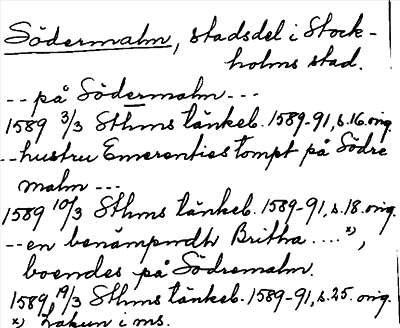 Södermalm, stadsdel i Stock-
holms stad.
-- på Södermalm ---
1589 3/3 Sthms tänkeb. 1589-91, s.16. orig.
-- hustru Emerenties tompt på Södre
malm ---
1589 10/3 Sthms tänkeb. 1589-91, s.18. orig.
-- en benämpndh Britha .... x),
boendes på Södremalm.
1589, 19/3 Sthms tänkeb. 1589-91, s.25. orig.
x) Lakun i ms.